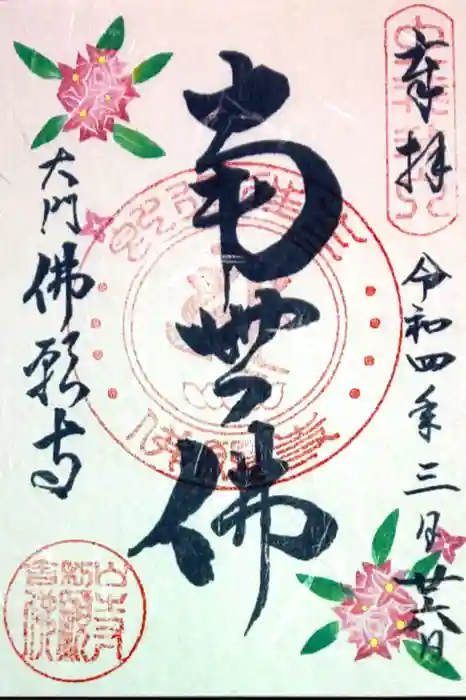 奉拝
令和四年三月廿六日
南無佛
大門 佛願寺